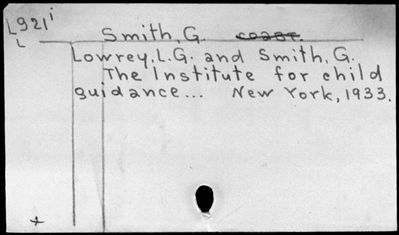 L921i Smith, G. coaut.
L
Lowrey, L.G. and Smith, G.
The Institute for child
guidance... New York, 1933.